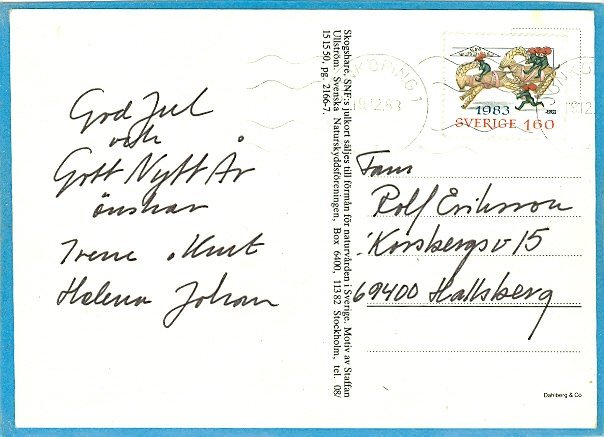 God Jul
och
Gott Nytt År
önskar
Irene Knut
Helena Johan
Skogshare. SNF:s julkort säljes till förmån för naturvården i Sverige. Motiv av Staffan
Ullström. Svenska Naturskyddsföreningen, Box 6400, 113 82 Stockholm, tel. 08/
15 15 50, pg. 2166-7.
KÖPING 1
19.12.83
1983
SVERIGE 160
Fam
Rolf Eriksson
Korsbergsv 15
69400 Hallsberg
Dahlberg & Co